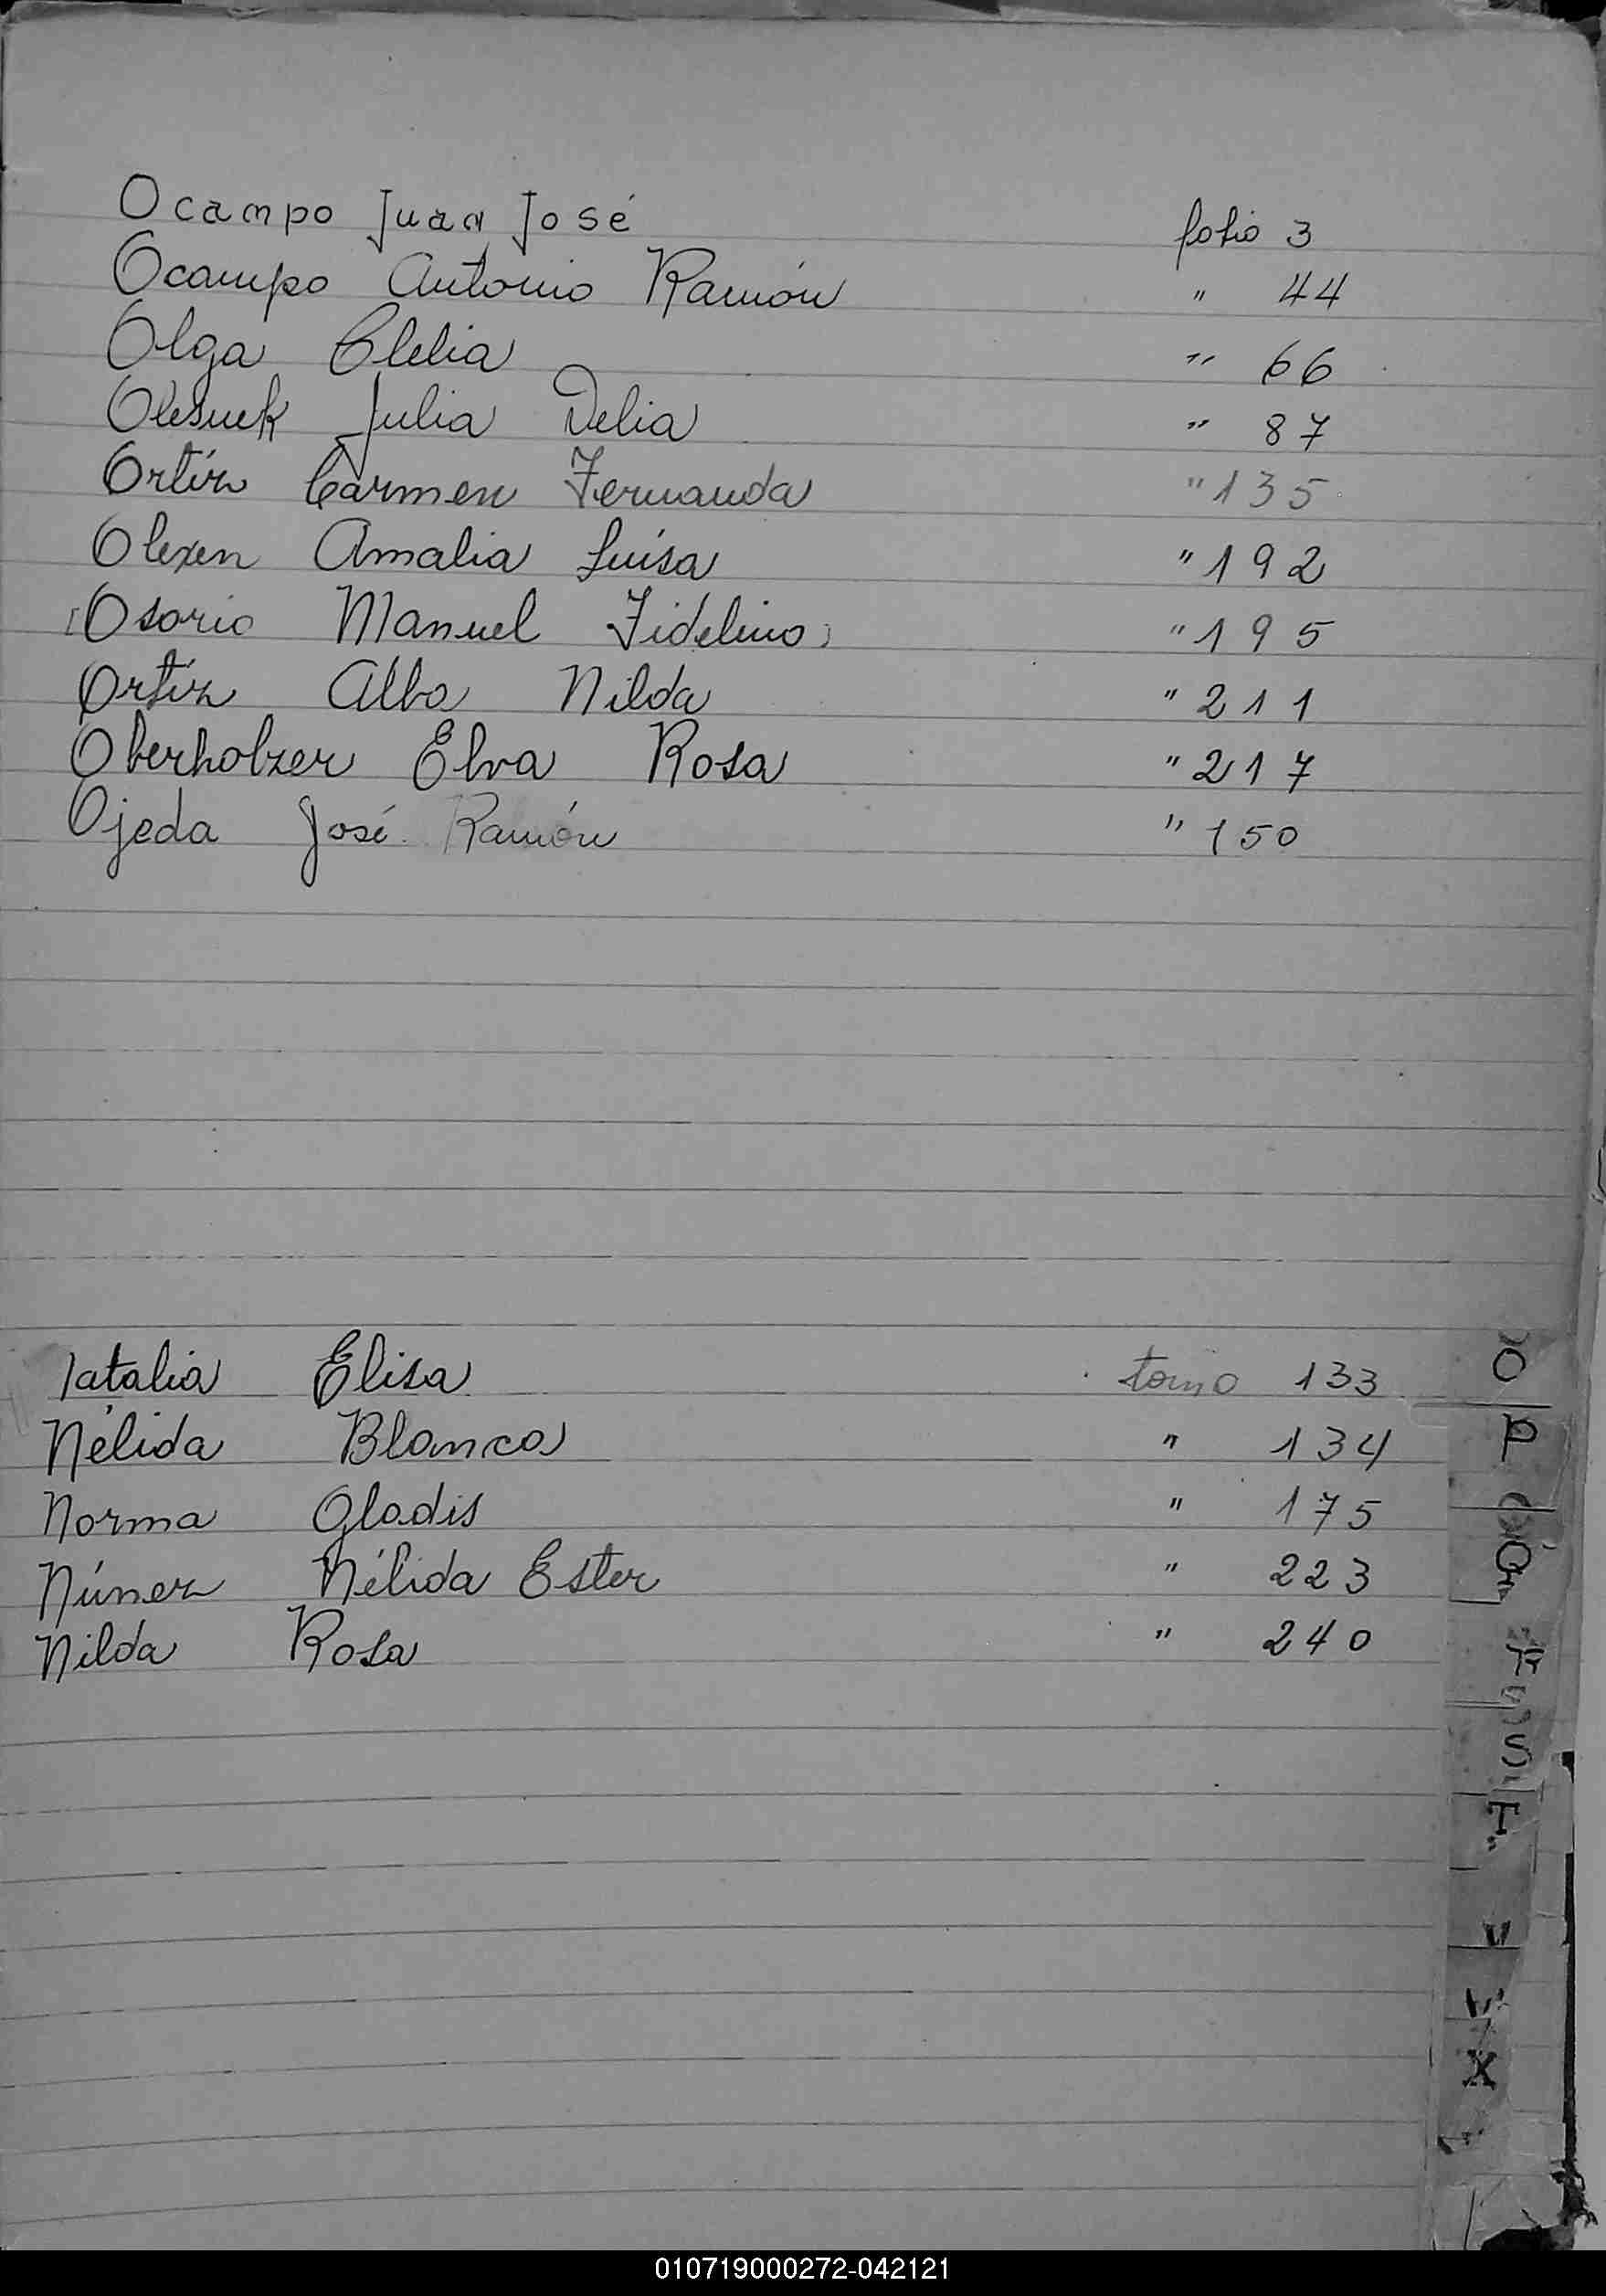 Ocampo Juan José folio 3
Ocampo Antonio Ramón " 44
Olga Clelia " 66
Olesuck Julia Delia " 87
Ortíz Carmen Fernanda " 135
Olexen Amalia Luisa " 192
Osorio Manuel Fidelino " 195
Ortíz Alba Nilda " 211
Oberholzer Elva Rosa " 217
Ojeda José Ramón " 150
Natalia Elisa tomo 133
Nélida Blanca " 134
Norma Gladis " 175
Núnez Nélida Ester " 223
Nilda Rosa " 240
O
P
Q
S
T
V
W
X
010719000272-042121